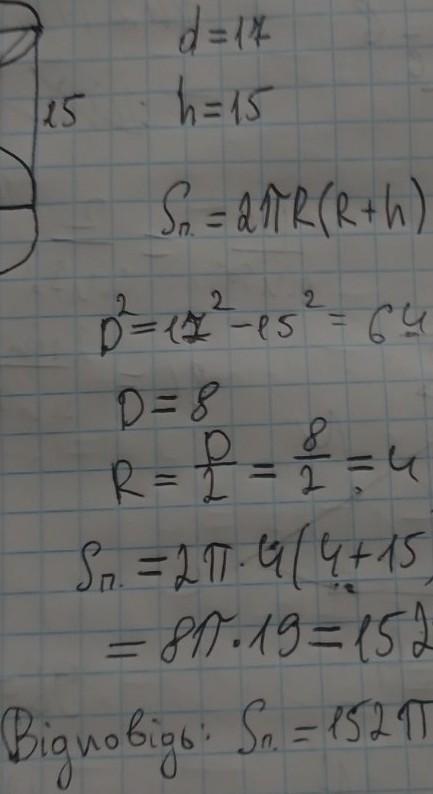 d=17
25
h=15
Sп.=2πR(R+h)
D²=17²-15²=64
D=8
R=D/2=8/2=4
Sп.=2π·4(4+15
=8π·19=152
Відповідь: Sп.=152π